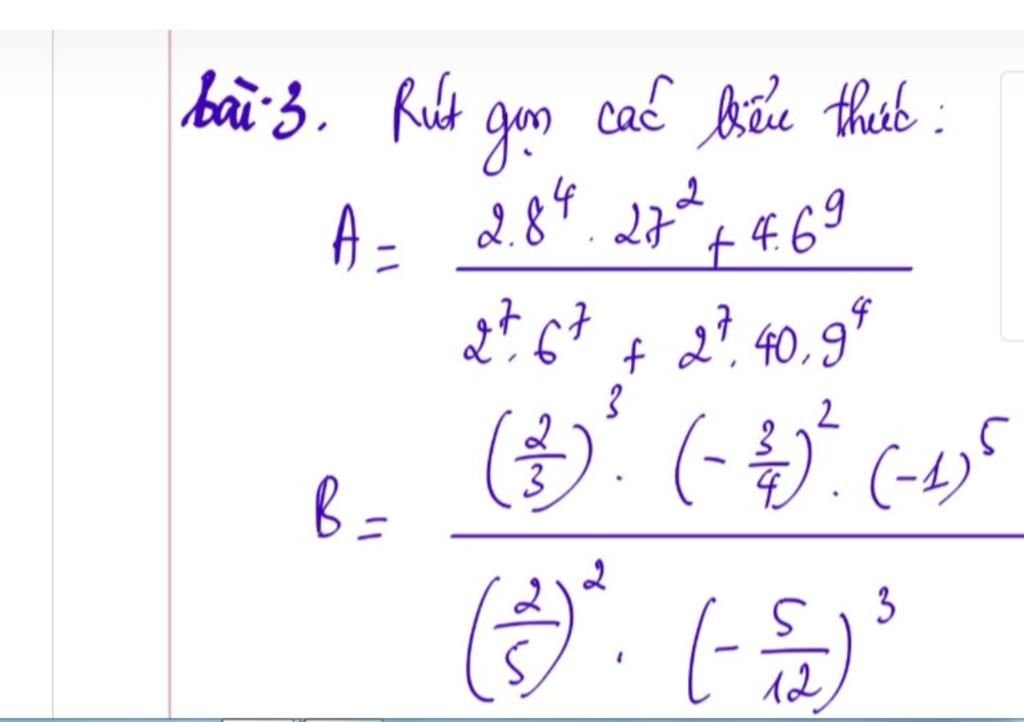 bài 3. Rút gọn các biểu thức:
A = \frac{2.8^4 . 27^2 + 4.6^9}{2^7 . 6^7 + 2^7 . 40 . 9^4}
B = \frac{(\frac{2}{3})^3 . (-\frac{3}{4})^2 . (-1)^5}{(\frac{2}{5})^2 . (-\frac{5}{12})^3}